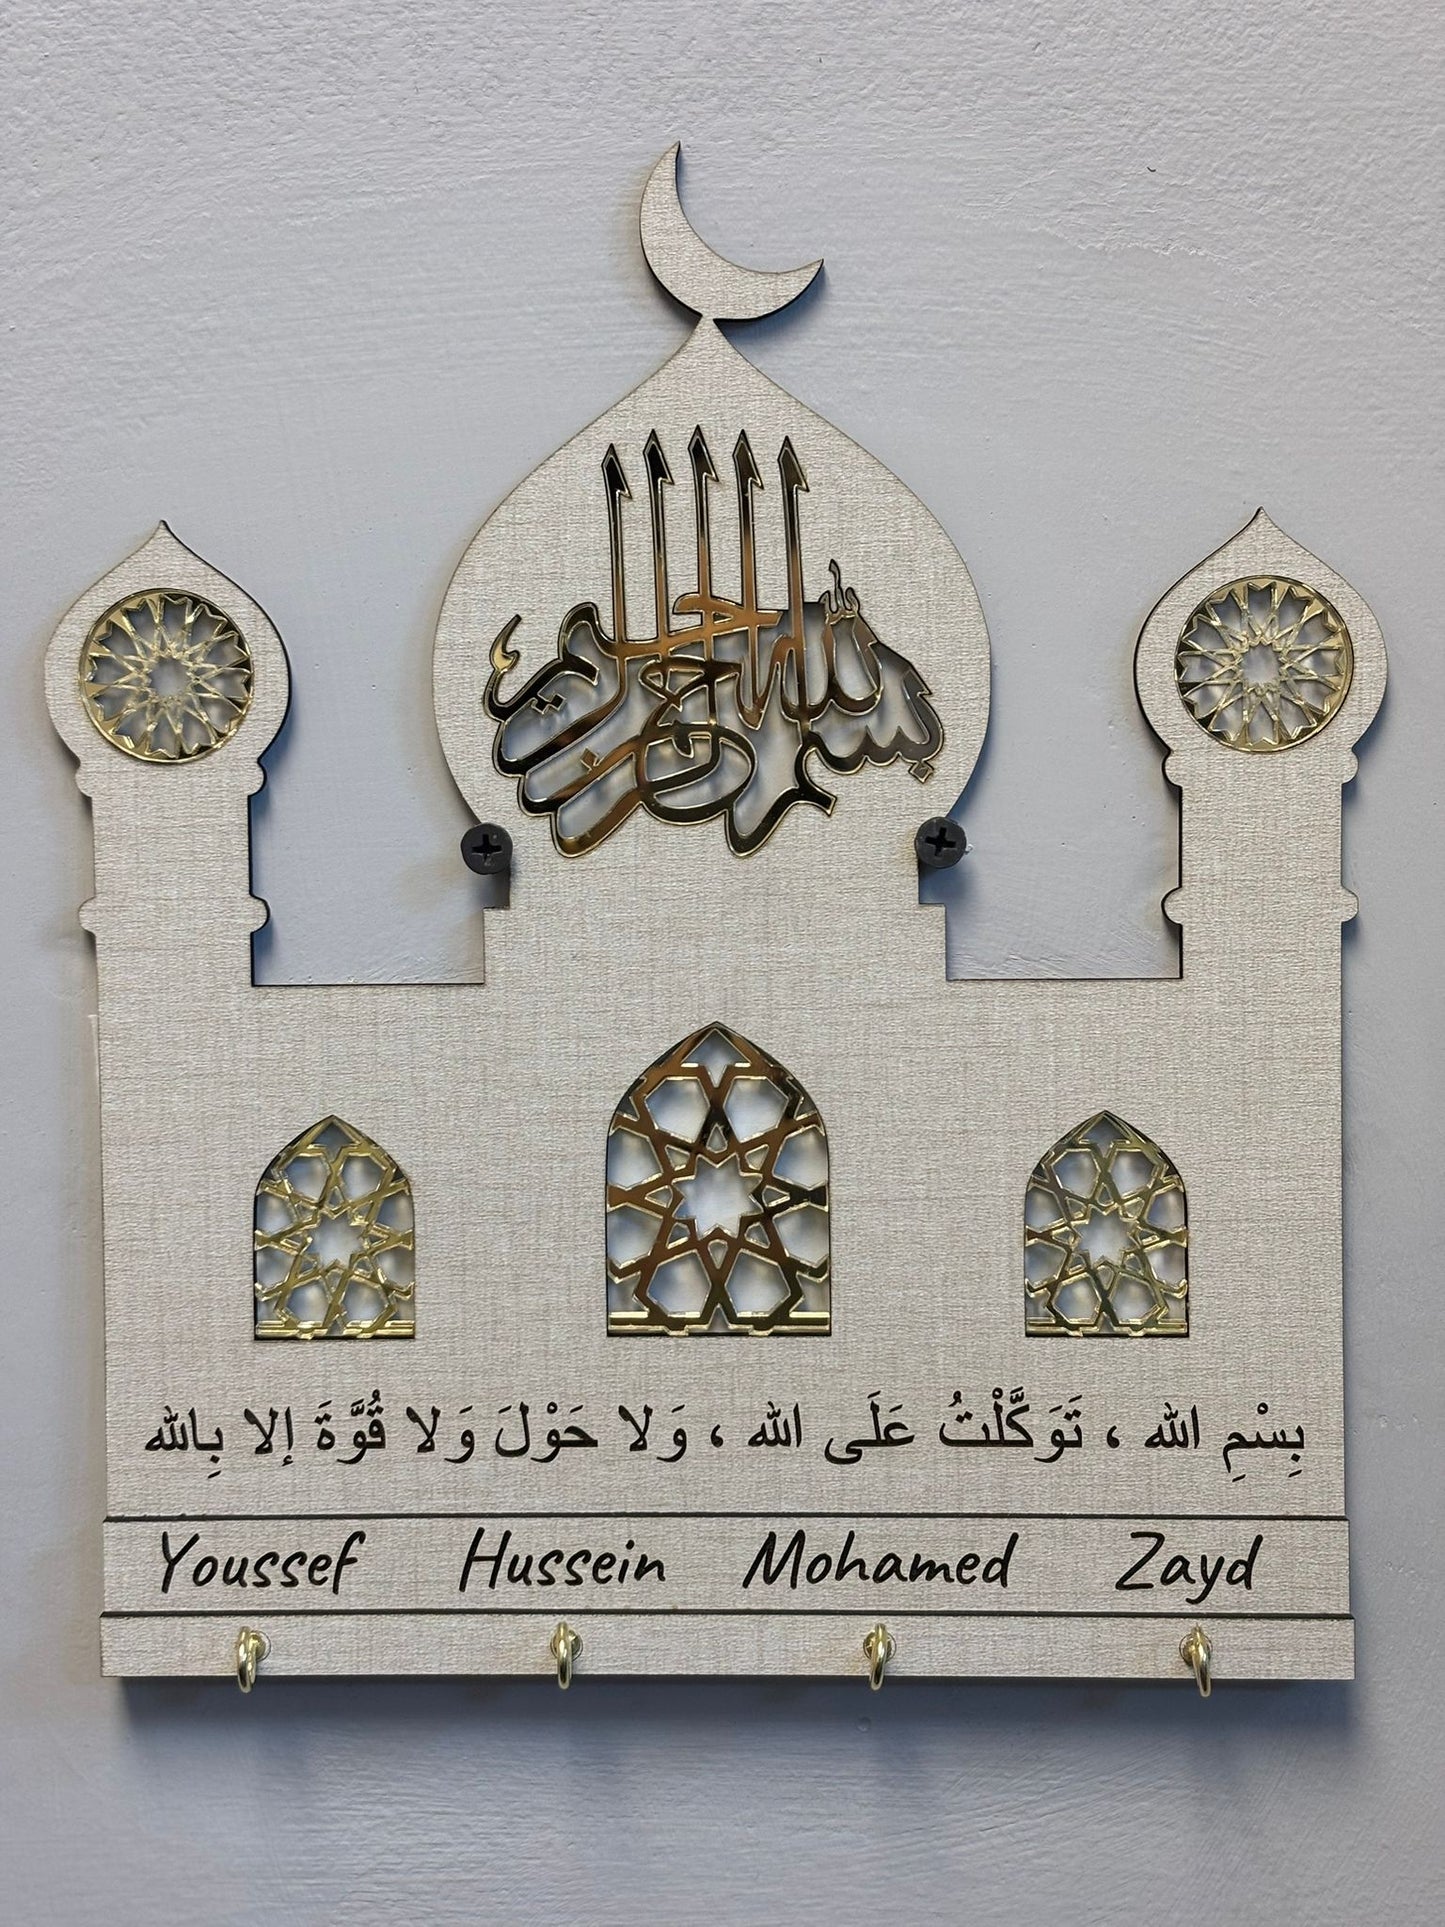 بسم الله الرحمن الرحيم
بِسْمِ الله ، تَوَكَّلْتُ عَلَى الله ، وَلا حَوْلَ وَلا قُوَّةَ إلا بِالله
Youssef Hussein Mohamed Zayd